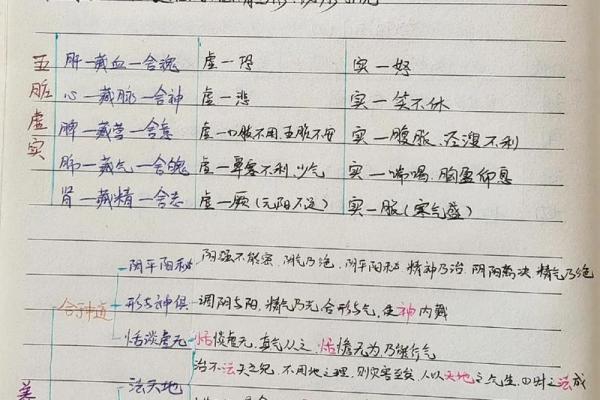 五脏虚实
肝—藏血—舍魂 虚—恐 实—怒
心—藏脉—舍神 虚—悲 实—笑不休
脾—藏营—舍意 虚—四肢不用,五脏不安 实—腹胀,泾溲不利
肺—藏气—舍魄 虚—鼻塞不利,少气 实—喘喝,胸盈仰息
肾—藏精—舍志 虚—厥(元阳不足) 实—胀(寒气盛)
阴平阳秘 阴强不能密,阴气乃绝,阴平阳秘,精神乃治,阴阳离决,精气乃绝
形与神俱 调阴与阳,精气乃光,合形与气,使神内藏
恬淡虚无 恬惔虚无,真气从之,恬憺无为,乃能行气
法天地 治不法天之纪,不用地之理,则灾害至矣,人以天地之气生,四时之法成
养